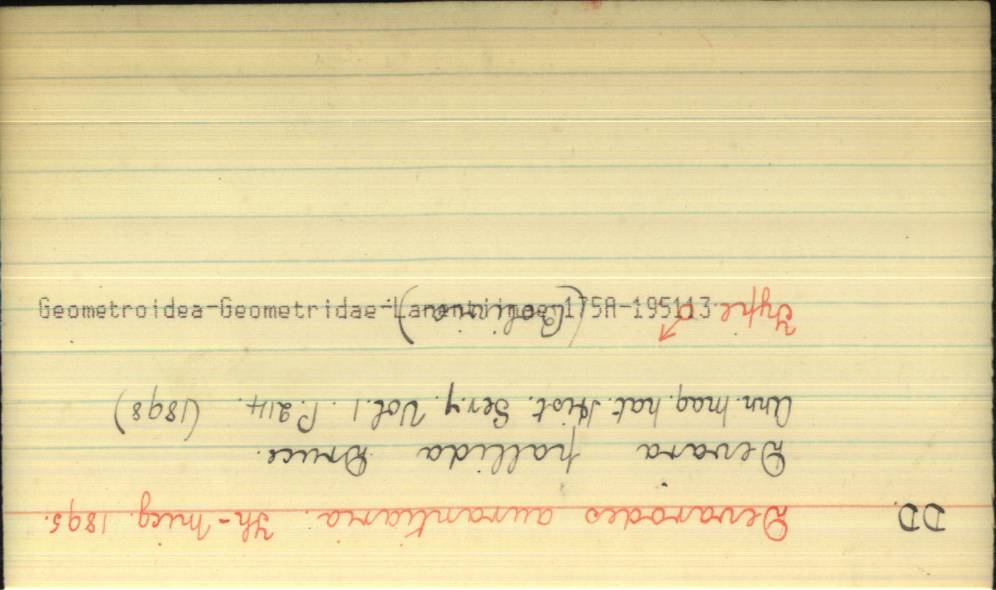 DD. Devarodes aurantiaria. Th-Mieg. 1895.
Devara pallida Druce.
Ann. Mag. Nat. Hist. Ser. 7. Vol. 1. P. 214. (1898)
Type ♂ (Bolivia)
Geometroidea-Geometridae-Larentiinae-175A-195113